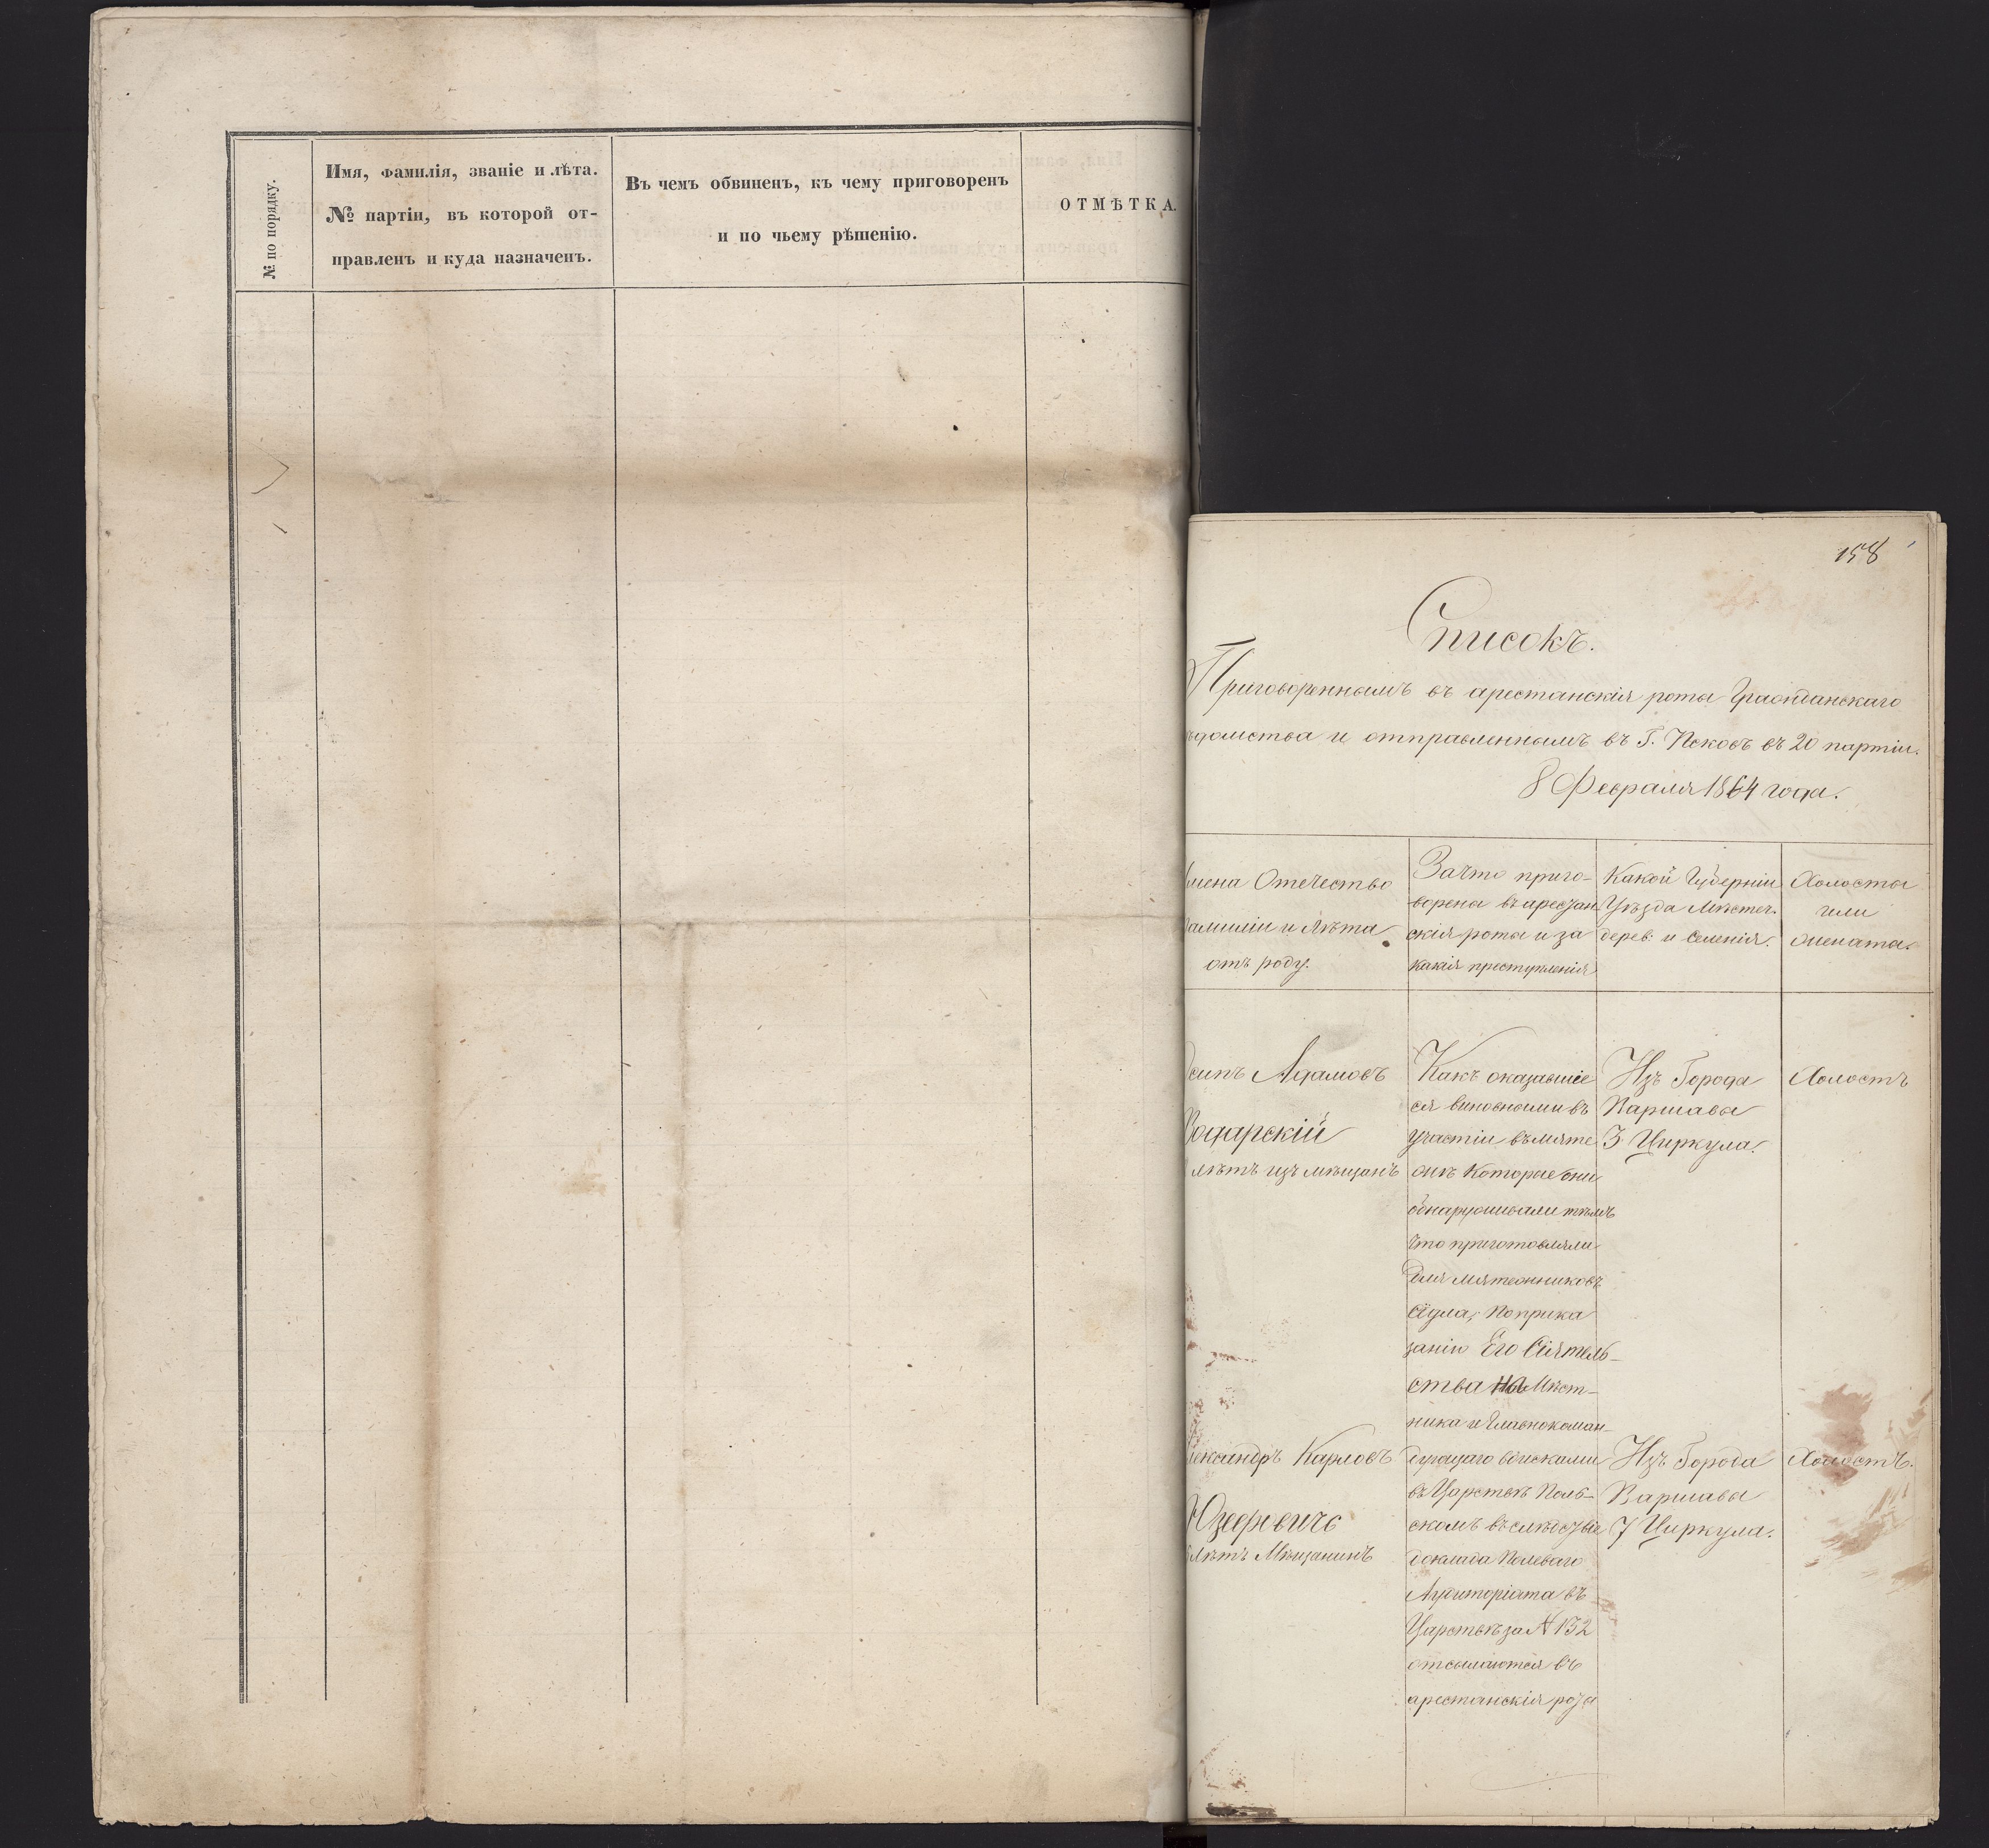 № по порядку.
Имя, фамилія, званіе и лѣта.
№ партіи, въ которой от-
правленъ и куда назначенъ.
Въ чемъ обвиненъ, къ чему приговоренъ
и по чьему рѣшенію.
ОТМѢТКА.
158
Списокъ.
Приговореннымъ въ арестанскія роты Гражданскаго
ѣдомства и отправленнымъ въ Г. Псковъ въ 20 партіи.
8 Февраля 1864 года.
мена Отечество
амиліи и лѣта
отъ роду.
Зачто приго-
ворены въ арестан
скія роты и за
какія преступленія
Какой Губерніи
Уѣзда Мѣстеч.
дерев: и селенія.
Холосты
или
женаты.
сипъ Адамовъ
Лѣтъ изъ мѣщанъ
Какъ оказавшіе
ся виновными въ
участіи въ мяте
жѣ которые они
обнаруживали тѣмъ
что приготовляли
для мятежниковъ
сѣдла, по прика
занію Его Сіятель-
ства На Мѣст-
ника и Главнокоман-
дующаго войсками
въ Царствѣ Поль-
скомъ въ слѣдствіе
доклада Полеваго
Аудиторіата въ
Царствѣ за № 132
отсылаются въ
арестанскія роты
Изъ Города
Варшавы
3 Циркула.
Холостъ
лександръ Карловъ
Юзефовичъ
лѣтъ Мѣщанинъ
Изъ Города
Варшавы
7 Циркула.
Холостъ.